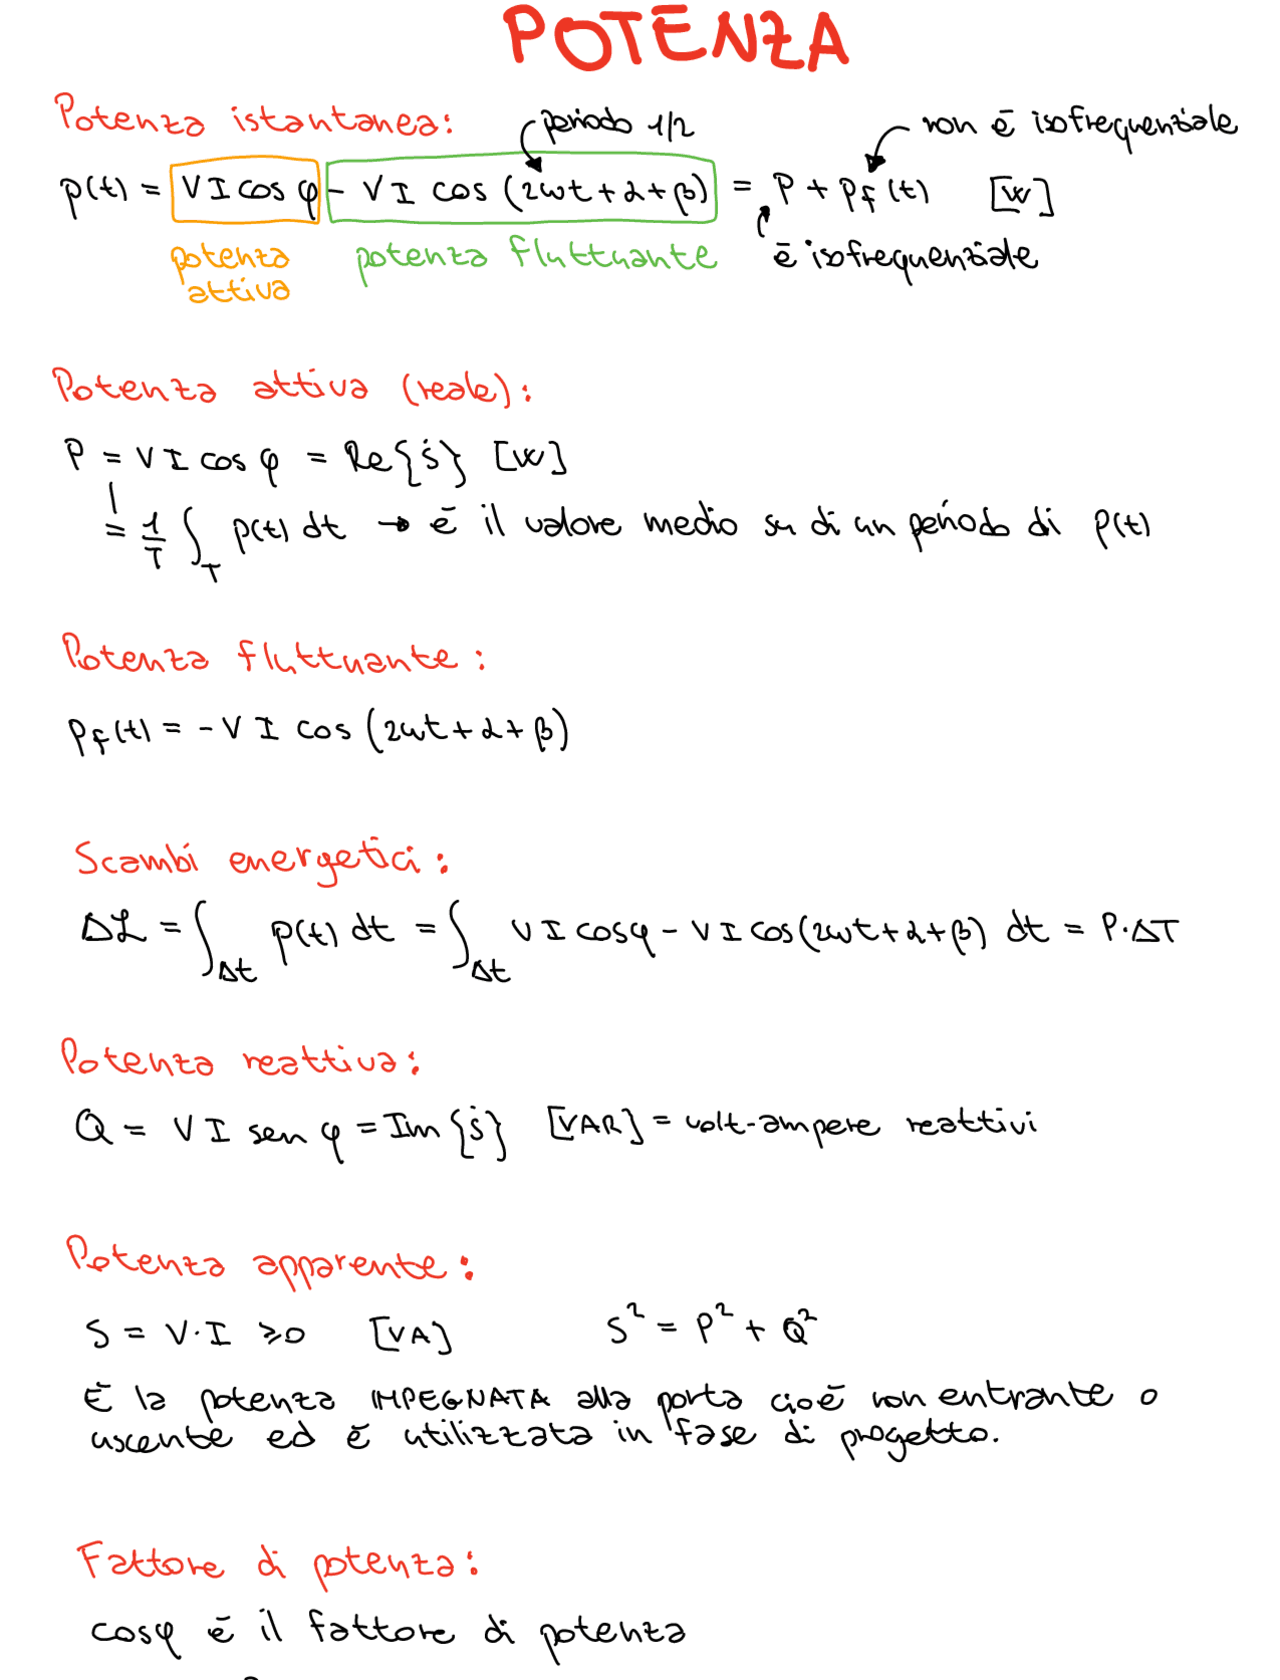 POTENZA
Potenza istantanea:
periodo 1/2
non è isofrequenziale
p(t) = VI cos φ - VI cos (2ωt+α+β) = P + pf(t) [W]
potenza attiva
potenza fluttuante
è isofrequenziale
Potenza attiva (reale):
P = VI cos φ = Re{ṡ} [W]
= 1/T ∫T p(t) dt → è il valore medio su di un periodo di p(t)
Potenza fluttuante:
pf(t) = - VI cos (2ωt+α+β)
Scambi energetici:
Δℒ = ∫Δt p(t) dt = ∫Δt VI cosφ - VI cos(2ωt+α+β) dt = P·ΔT
Potenza reattiva:
Q = VI sen φ = Im{ṡ} [VAR] = volt-ampere reattivi
Potenza apparente:
S = V·I ≥0 [VA] S² = P² + Q²
È la potenza IMPEGNATA alla porta cioè non entrante o
uscente ed è utilizzata in fase di progetto.
Fattore di potenza:
cosφ è il fattore di potenza